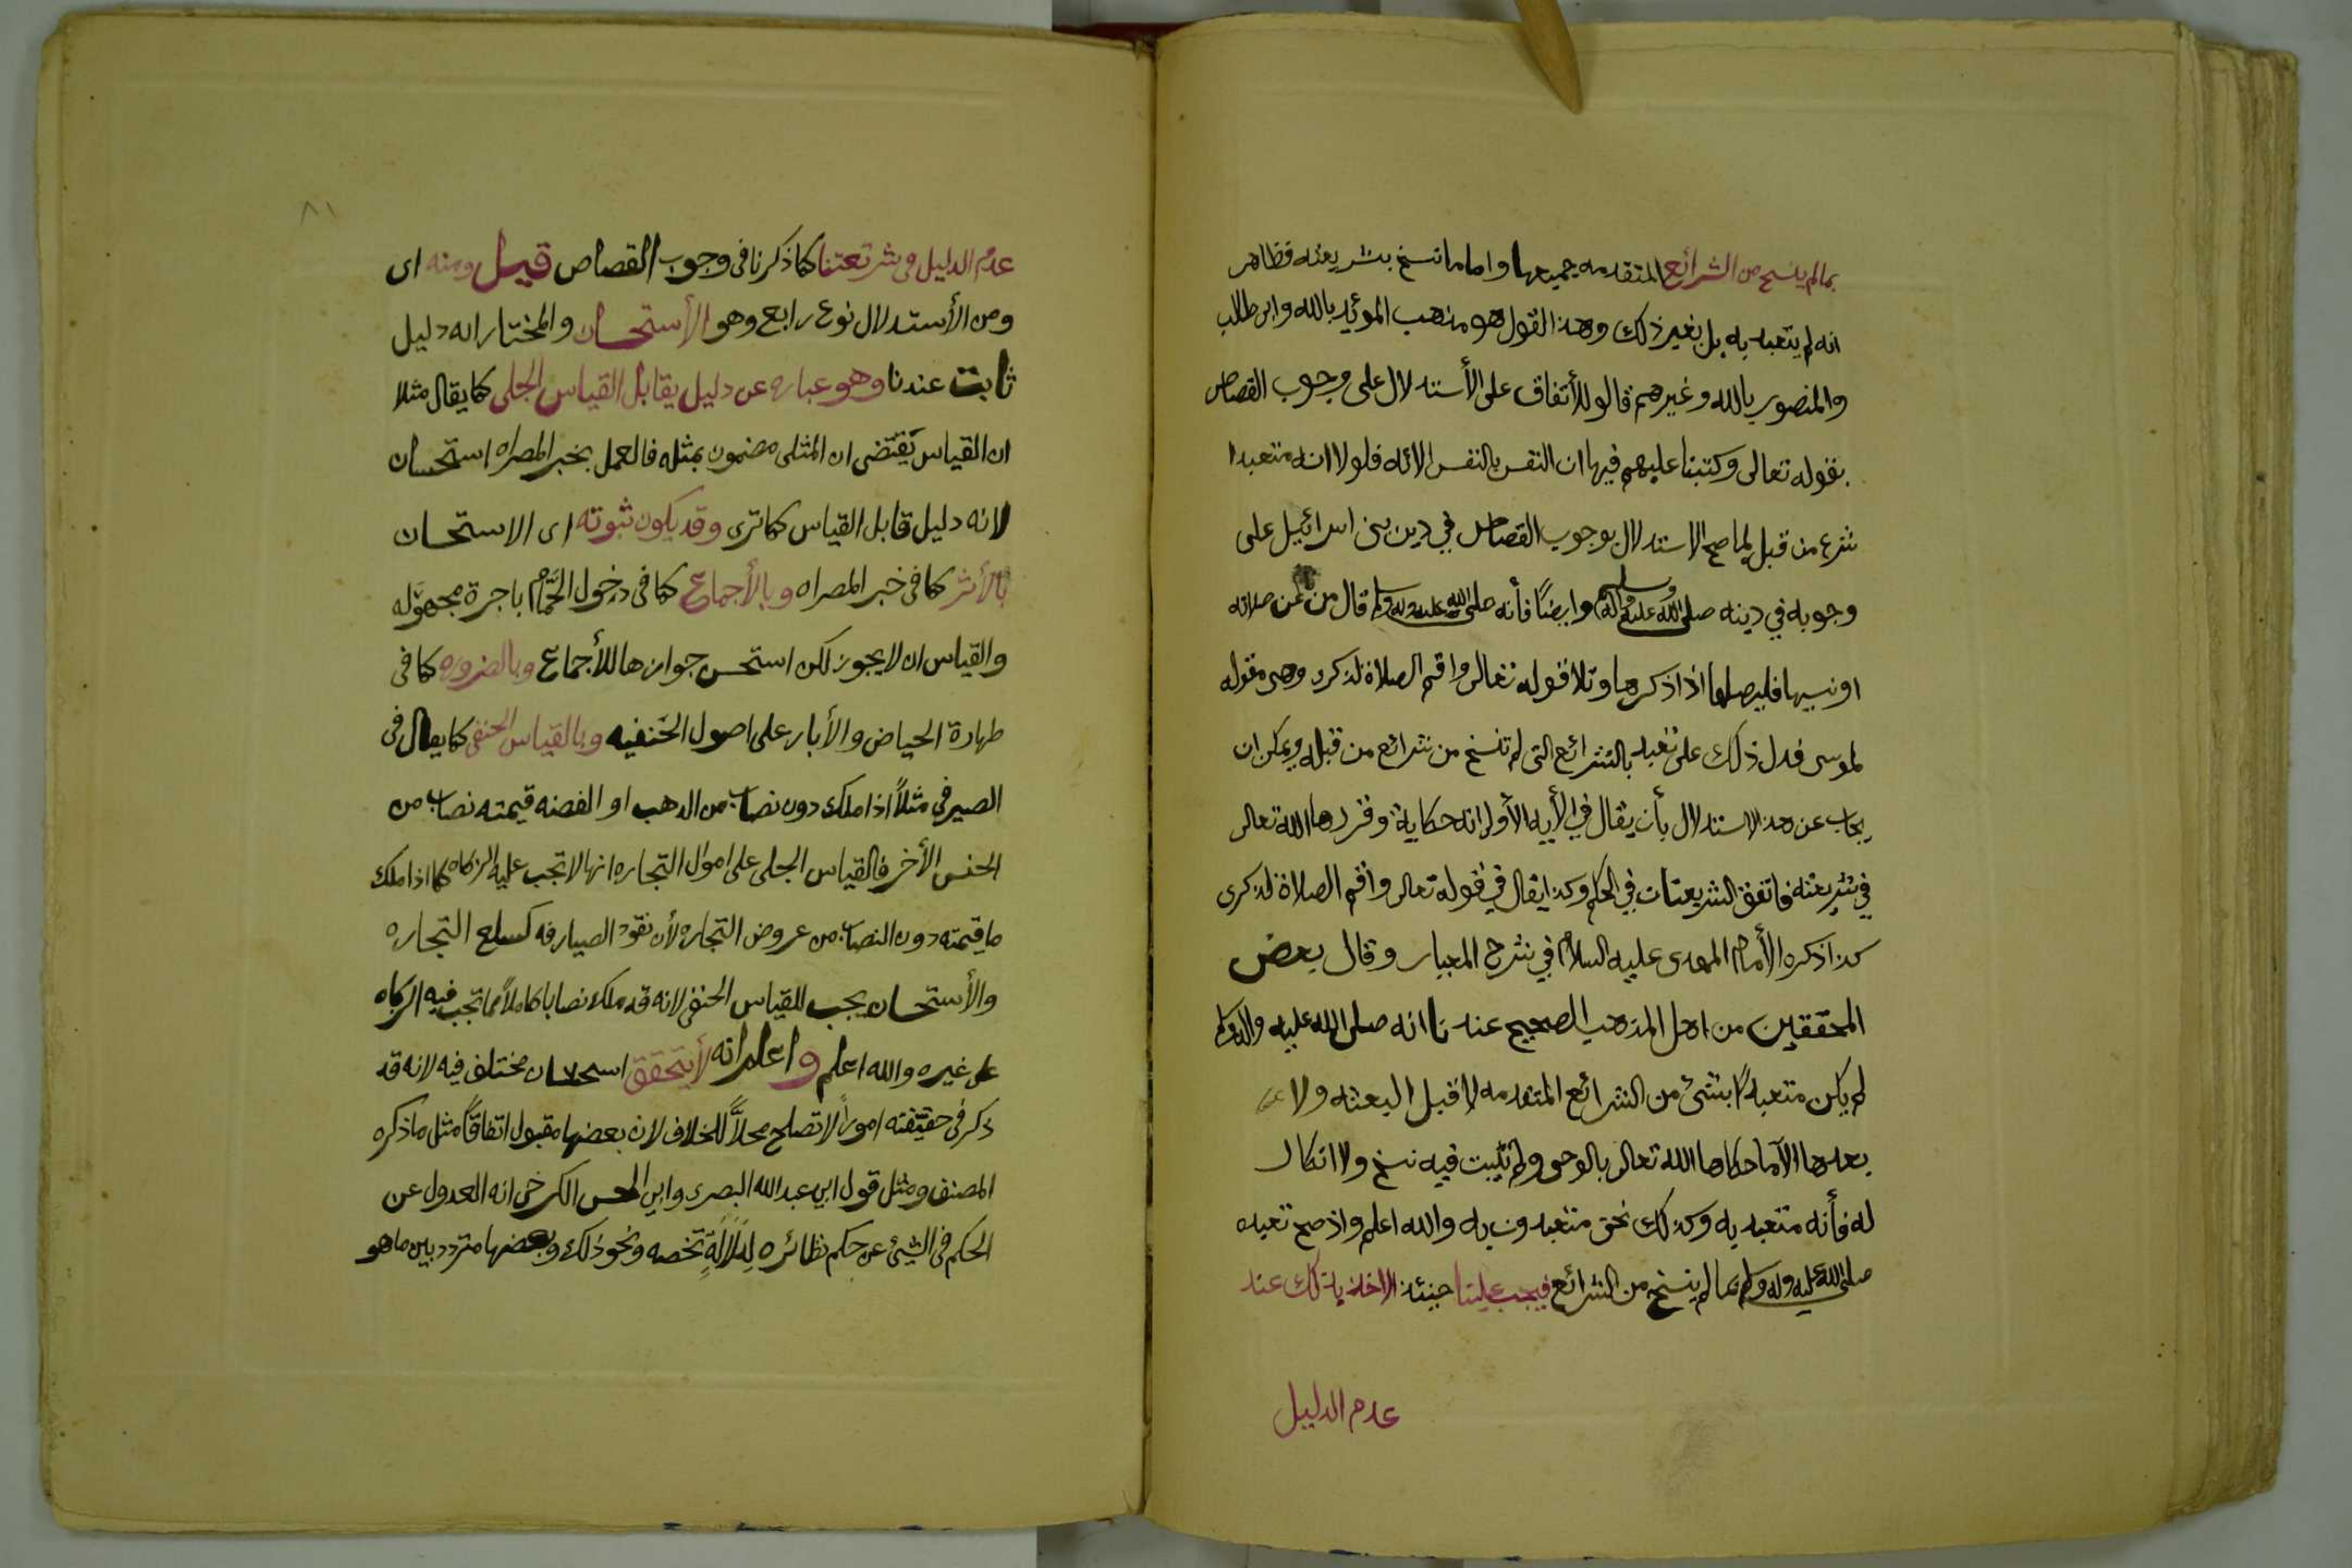 بمالم ينسخ من الشرائع المتقدمه جميعها واما ما نسخ بشريعته فظاهر
انه لم يتعبد به بل بغير ذلك وهذا القول هو مذهب المؤيد بالله وابى طالب
والمنصور بالله وغيرهم قالو للأتفاق على الأستدلال على وجوب القصاص
بقوله تعالى وكتبنا عليهم فيها ان النفس بالنفس الائه فلولا انه متعبدا
شرع من قبل لما صح الاستدلال بوجوب القصاص في دين بنى اسرائيل على
وجوبه في دينه صلى الله عليه وآله وسلم وايضًا فأنه صلى الله عليه وله وسلم قال من عن صلاته
او نسيها فليصلها اذا ذكرها وتلا قوله تعالى واقم الصلاة لذكرى وهى مقوله
لموسى فدل ذلك على تعبد بالشرائع التى لم تنسخ من شرائع من قبله ويمكن ان
يجاب عن هذا الاستدلال بأن يقال في الأيه الأولى انه حكاية وقررها الله تعالى
في شريعته فاتفق الشريعتان في الحكم وكذا يقال في قوله تعالى واقم الصلاة لذكرى
كذا ذكره الأمام المهدى عليه السلام في شرح المعيار وقال بعض
المحققين من اهل المذهب الصحيح عندنا انه صلى الله عليه واله وسلم
لم يكن متعبدًا بشئ من الشرائع المتقدمه لا قبل البعثه ولا
بعدها الآما حكاها الله تعالى بالوحى ولم تثبت فيه نسخ ولا انكار
له فأنه متعبد به وكذلك نحن متعبدون به والله اعلم واذ صح تعبده
صلى الله عليه وله وسلم بما لم ينسخ من الشرائع فيجب علينا حينئذ الاخذ بذلك عند
عدم الدليل
٨١
عدم الدليل فى شرتعتنا كما ذكرنا فى وجوب القصاص قيل ومنه اى
ومن الأستدلال نوع رابع وهو الأستحسان والمختار انه دليل
ثابت عندنا وهو عباره عن دليل يقابل القياس الجلى كما يقال مثلا
ان القياس يَقتضى ان المثلى مضمون بمثله فالعمل بخبر المصراه استحسان
لانه دليل قابل القياس كما ترى وقد يكون ثبوته اى الاستحسان
بالأثر كما فى خبر المصراه وبالأجماع كما فى دخول الحَّمام باجرة مجهوَله
والقياس ان لا يجوز لكن استحسن جوازها للأجماع وبالضروره كما فى
طهارة الحياض والأبار على اصول الحَنفيه وبالقياس الخفى كما يقال فى
الصيرفى مثلاً اذا ملك دون نصاب من الذهب او الفضه قيمته نصاب من
الجنس الأخر فالقياس الجلى على اموال التجاره انها لا تجب عليه الزكاه كما اذا ملك
ما قيمته دون النصاب من عروض التجاره لأن نقود الصيارفه كسلع التجاره
والأستحسان يجب للقياس الخفى لانه قد ملك نصابا كاملاً مما تجب فيه الزكاه
على غيره والله اعلم واعلم انه لأيتحقق استحسان مختلف فيه لانه قد
ذكر فى حقيقته اموراً لا تصلح محلاًّ للخلاف لان بعضها مقبول اتفاقًا مثل ما ذكره
المصنف ومثل قول ابى عبد الله البصرى وابى الحسن الكرخى انه العدول عن
الحكم فى الشيئ عن حكم نظائره لِدَلالَةٍ تخصه ونحو ذلك وبعضها متردد بين ما هو